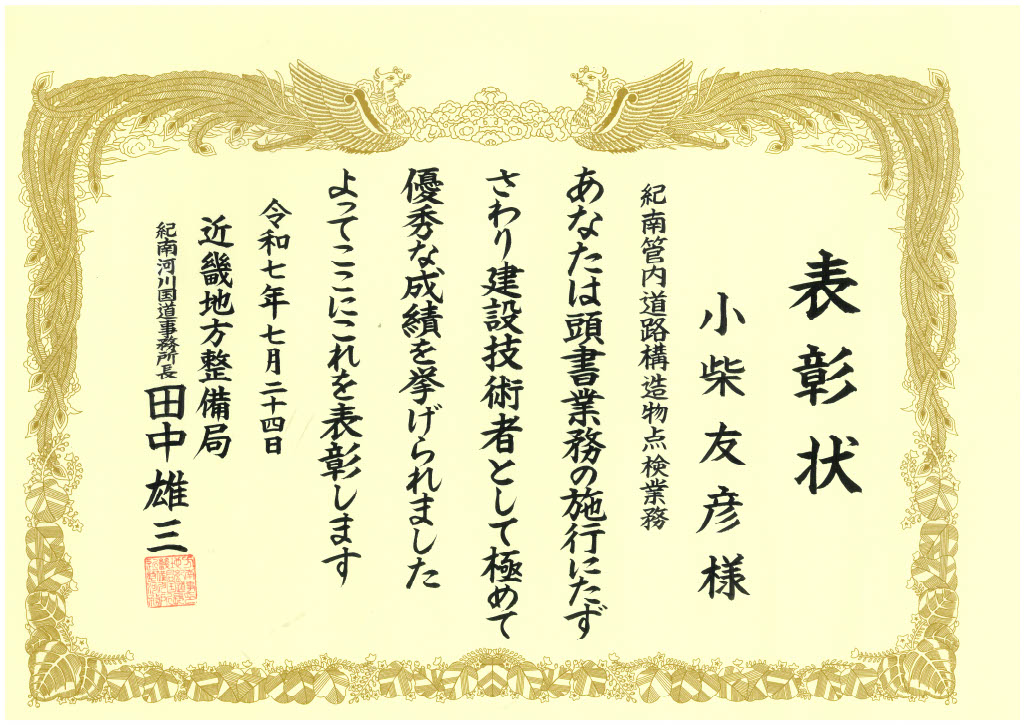 表彰状
小柴友彦様
紀南管内道路構造物点検業務
あなたは頭書業務の施行にたず
さわり建設技術者として極めて
優秀な成績を挙げられました
よってここにこれを表彰します
令和七年七月二十四日
近畿地方整備局
紀南河川国道事務所長 田中雄三